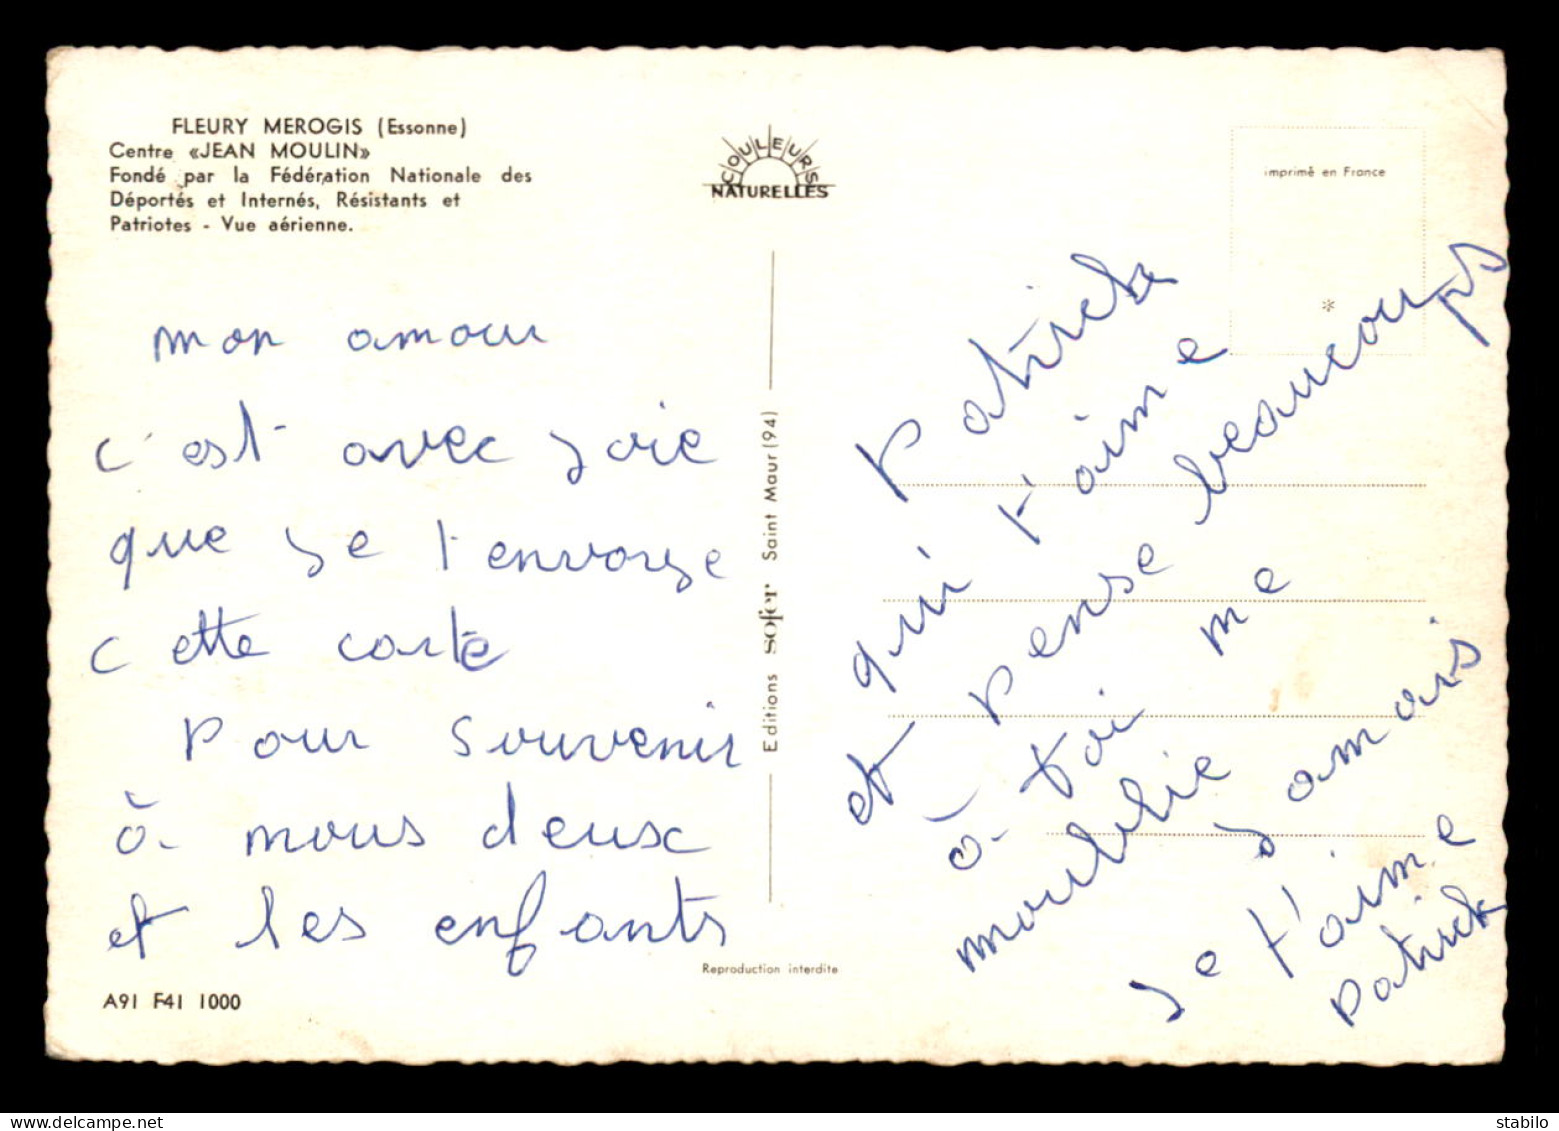 FLEURY MEROGIS (Essonne)
Centre «JEAN MOULIN»
Fondé par la Fédération Nationale des
Déportés et Internés, Résistants et
Patriotes - Vue aérienne.
COULEURS
NATURELLES
imprimé en France
*
mon amour
c'est avec joie
que je t envoye
cette carte
pour souvenir
à nous deux
et les enfants
A91 F41 1000
Editions sofer Saint Maur (94)
Reproduction interdite
Patrick
qui t'aime
et pense beaucoups
à toi me
moublie jamais
je t'aime
Patrick
delcampe.net
stabilo